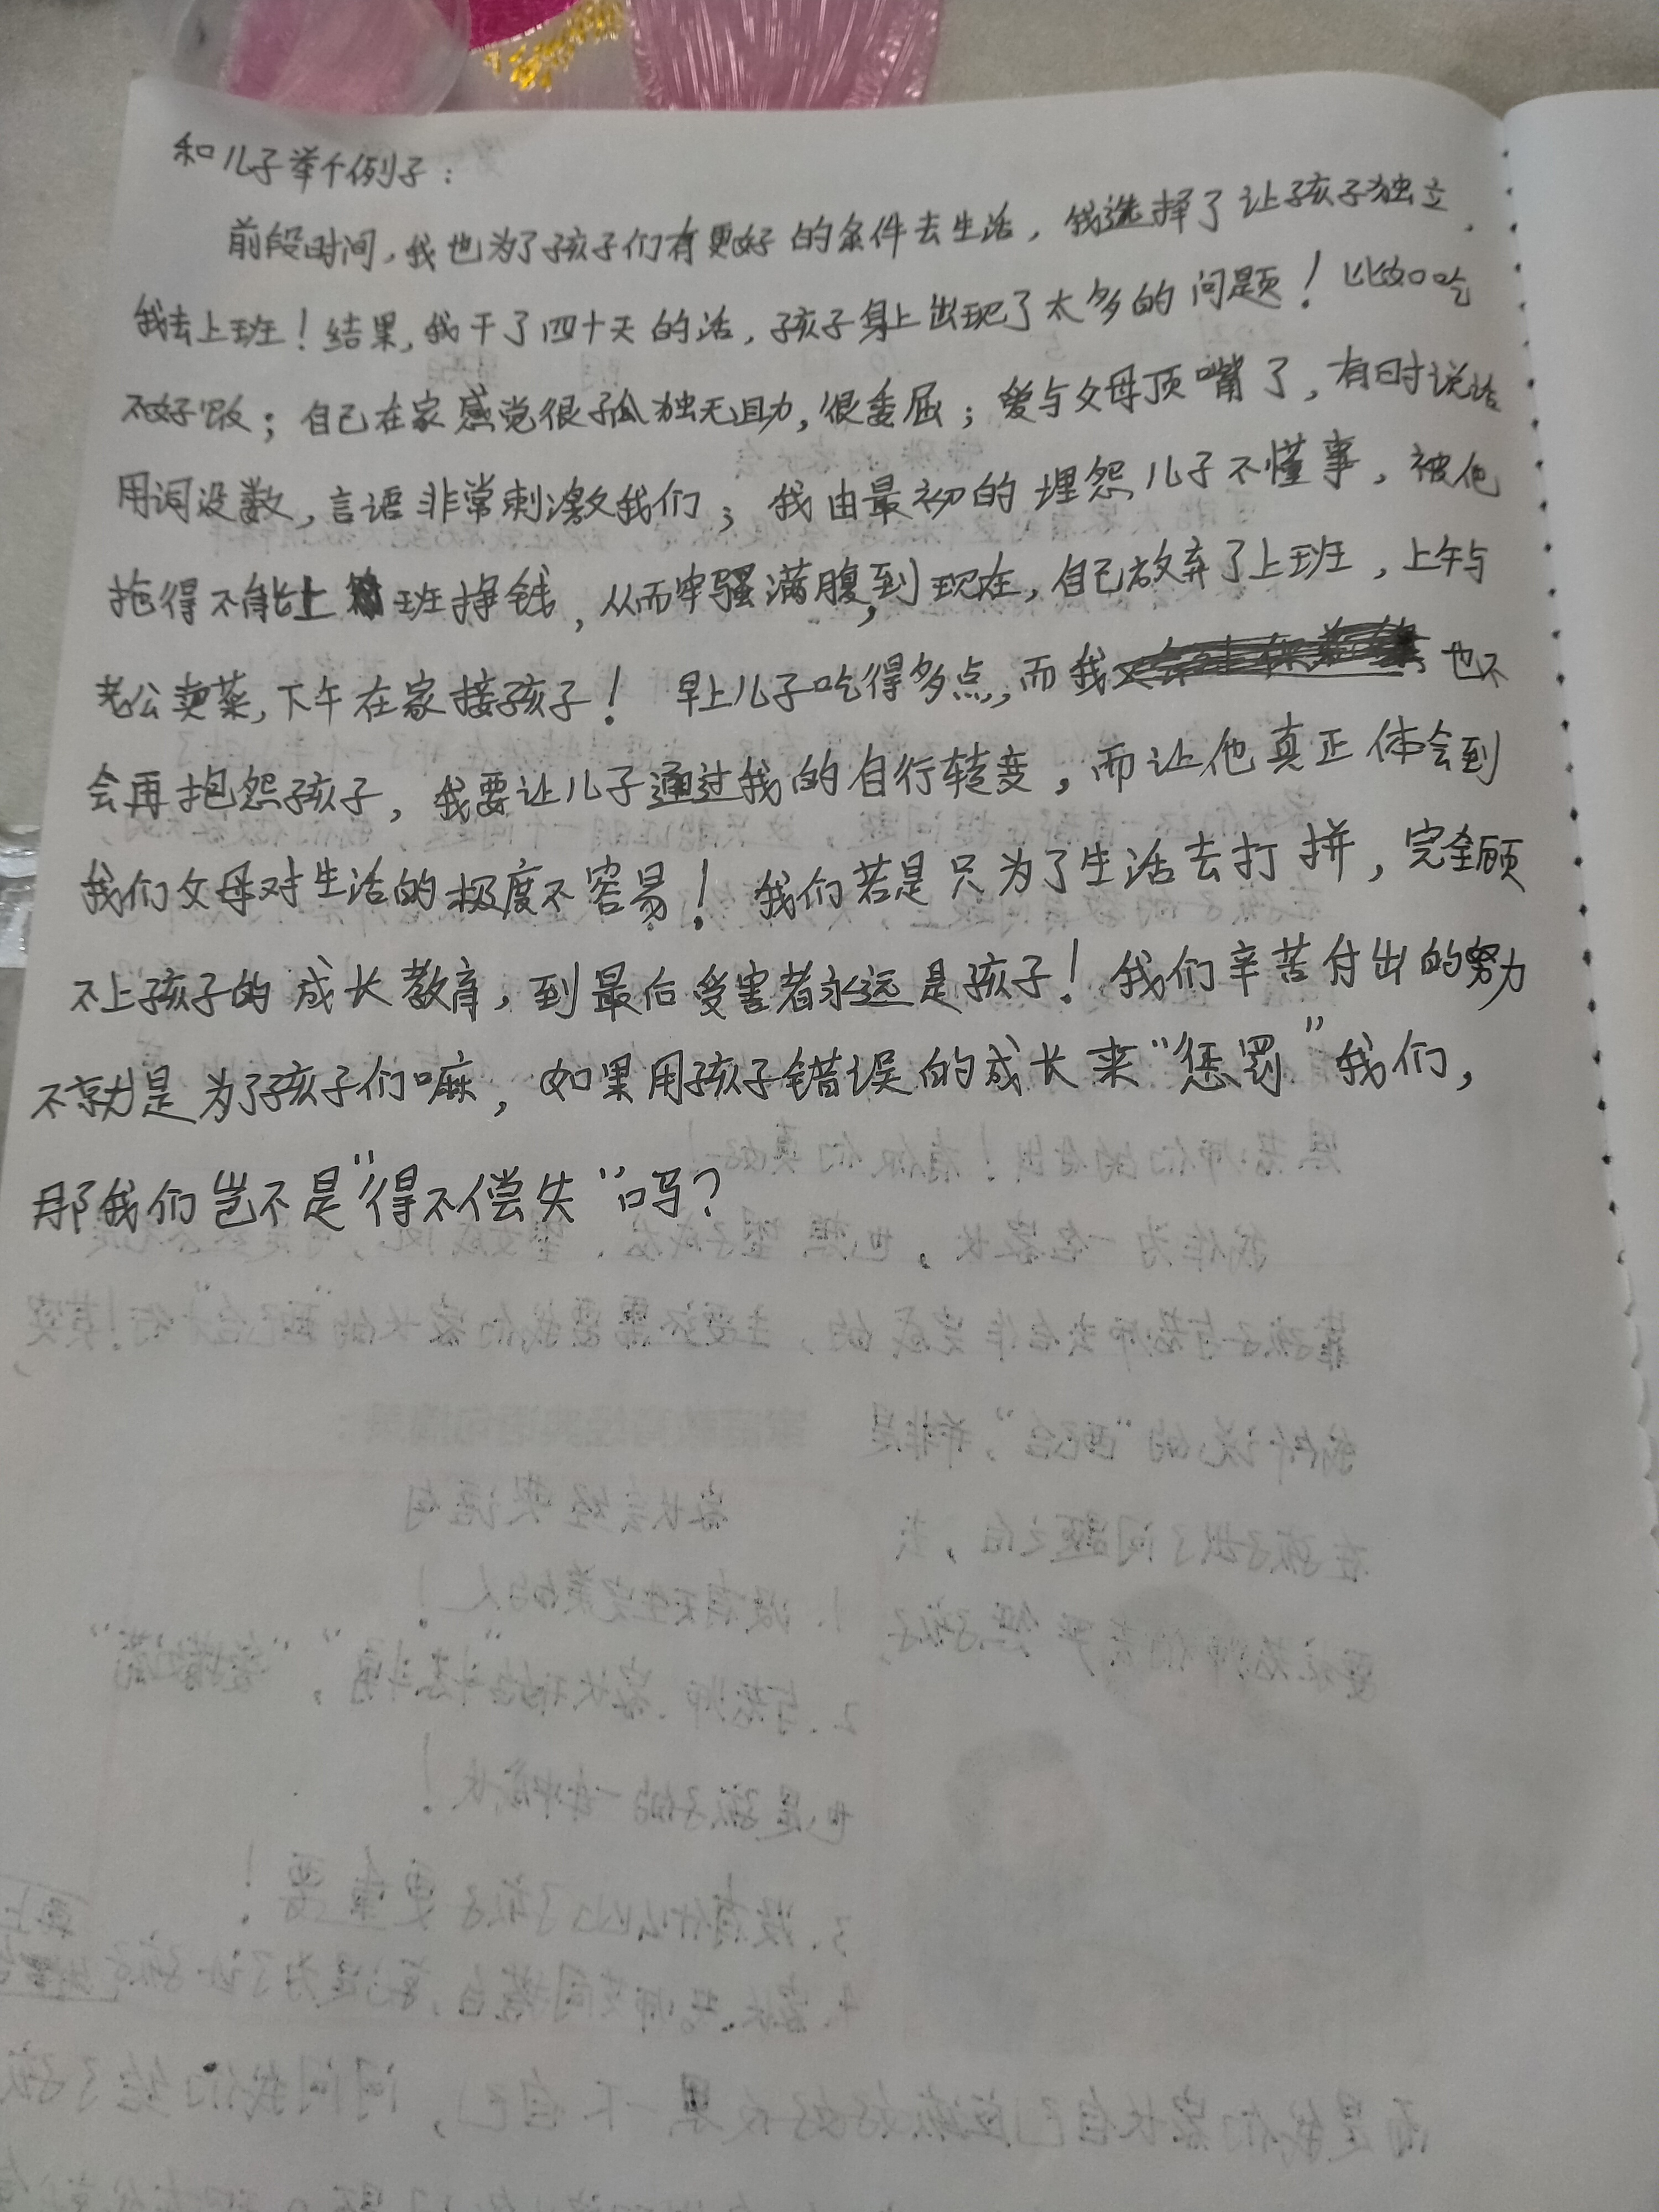 和儿子举个例子：
前段时间，我也为了孩子们有更好的条件去生活，我选择了让孩子独立，
我去上班！结果，我干了四十天的活，孩子身上出现了太多的问题！比如吃
不好饭；自己在家感觉很孤独无助，很委屈；爱与父母顶嘴了，有时说话
用词没数，言语非常刺激我们；我由最初的埋怨儿子不懂事，被他
拖得不能上班挣钱，从而牢骚满腹，到现在，自己放弃了上班，上午与
老公卖菜，下午在家接孩子！早上儿子吃得多点，而我也不
会再抱怨孩子，我要让儿子通过我的自行转变，而让他真正体会到
我们父母对生活的极度不容易！我们若是只为了生活去打拼，完全顾
不上孩子的成长教育，到最后受害者永远是孩子！我们辛苦付出的努力
不就是为了孩子们嘛，如果用孩子错误的成长来“惩罚”我们，
那我们岂不是“得不偿失”吗？